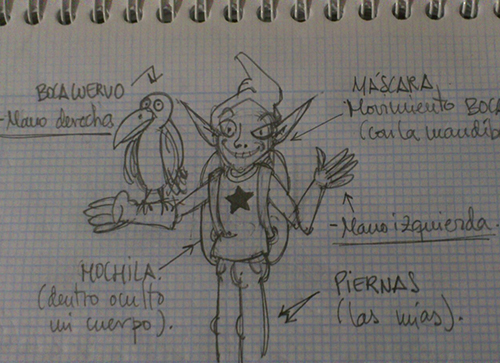 BOCA CUERVO
- Mano derecha
MÁSCARA
Movimiento BOCA
(con la mandíb
- Mano izquierda.
MOCHILA.
(dentro oculto
mi cuerpo).
PIERNAS
(las mías).